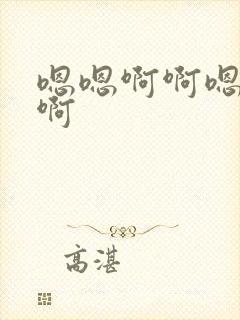 嗯嗯啊啊嗯
啊
高湛